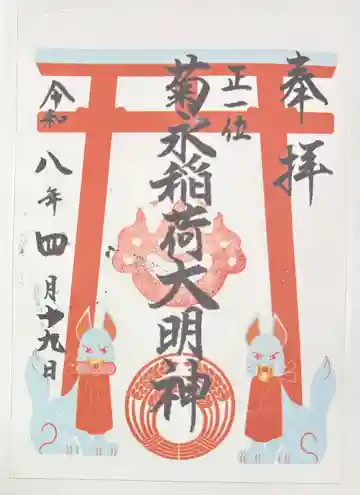 奉拝
正一位
菊永稲荷大明神
令和八年四月十九日